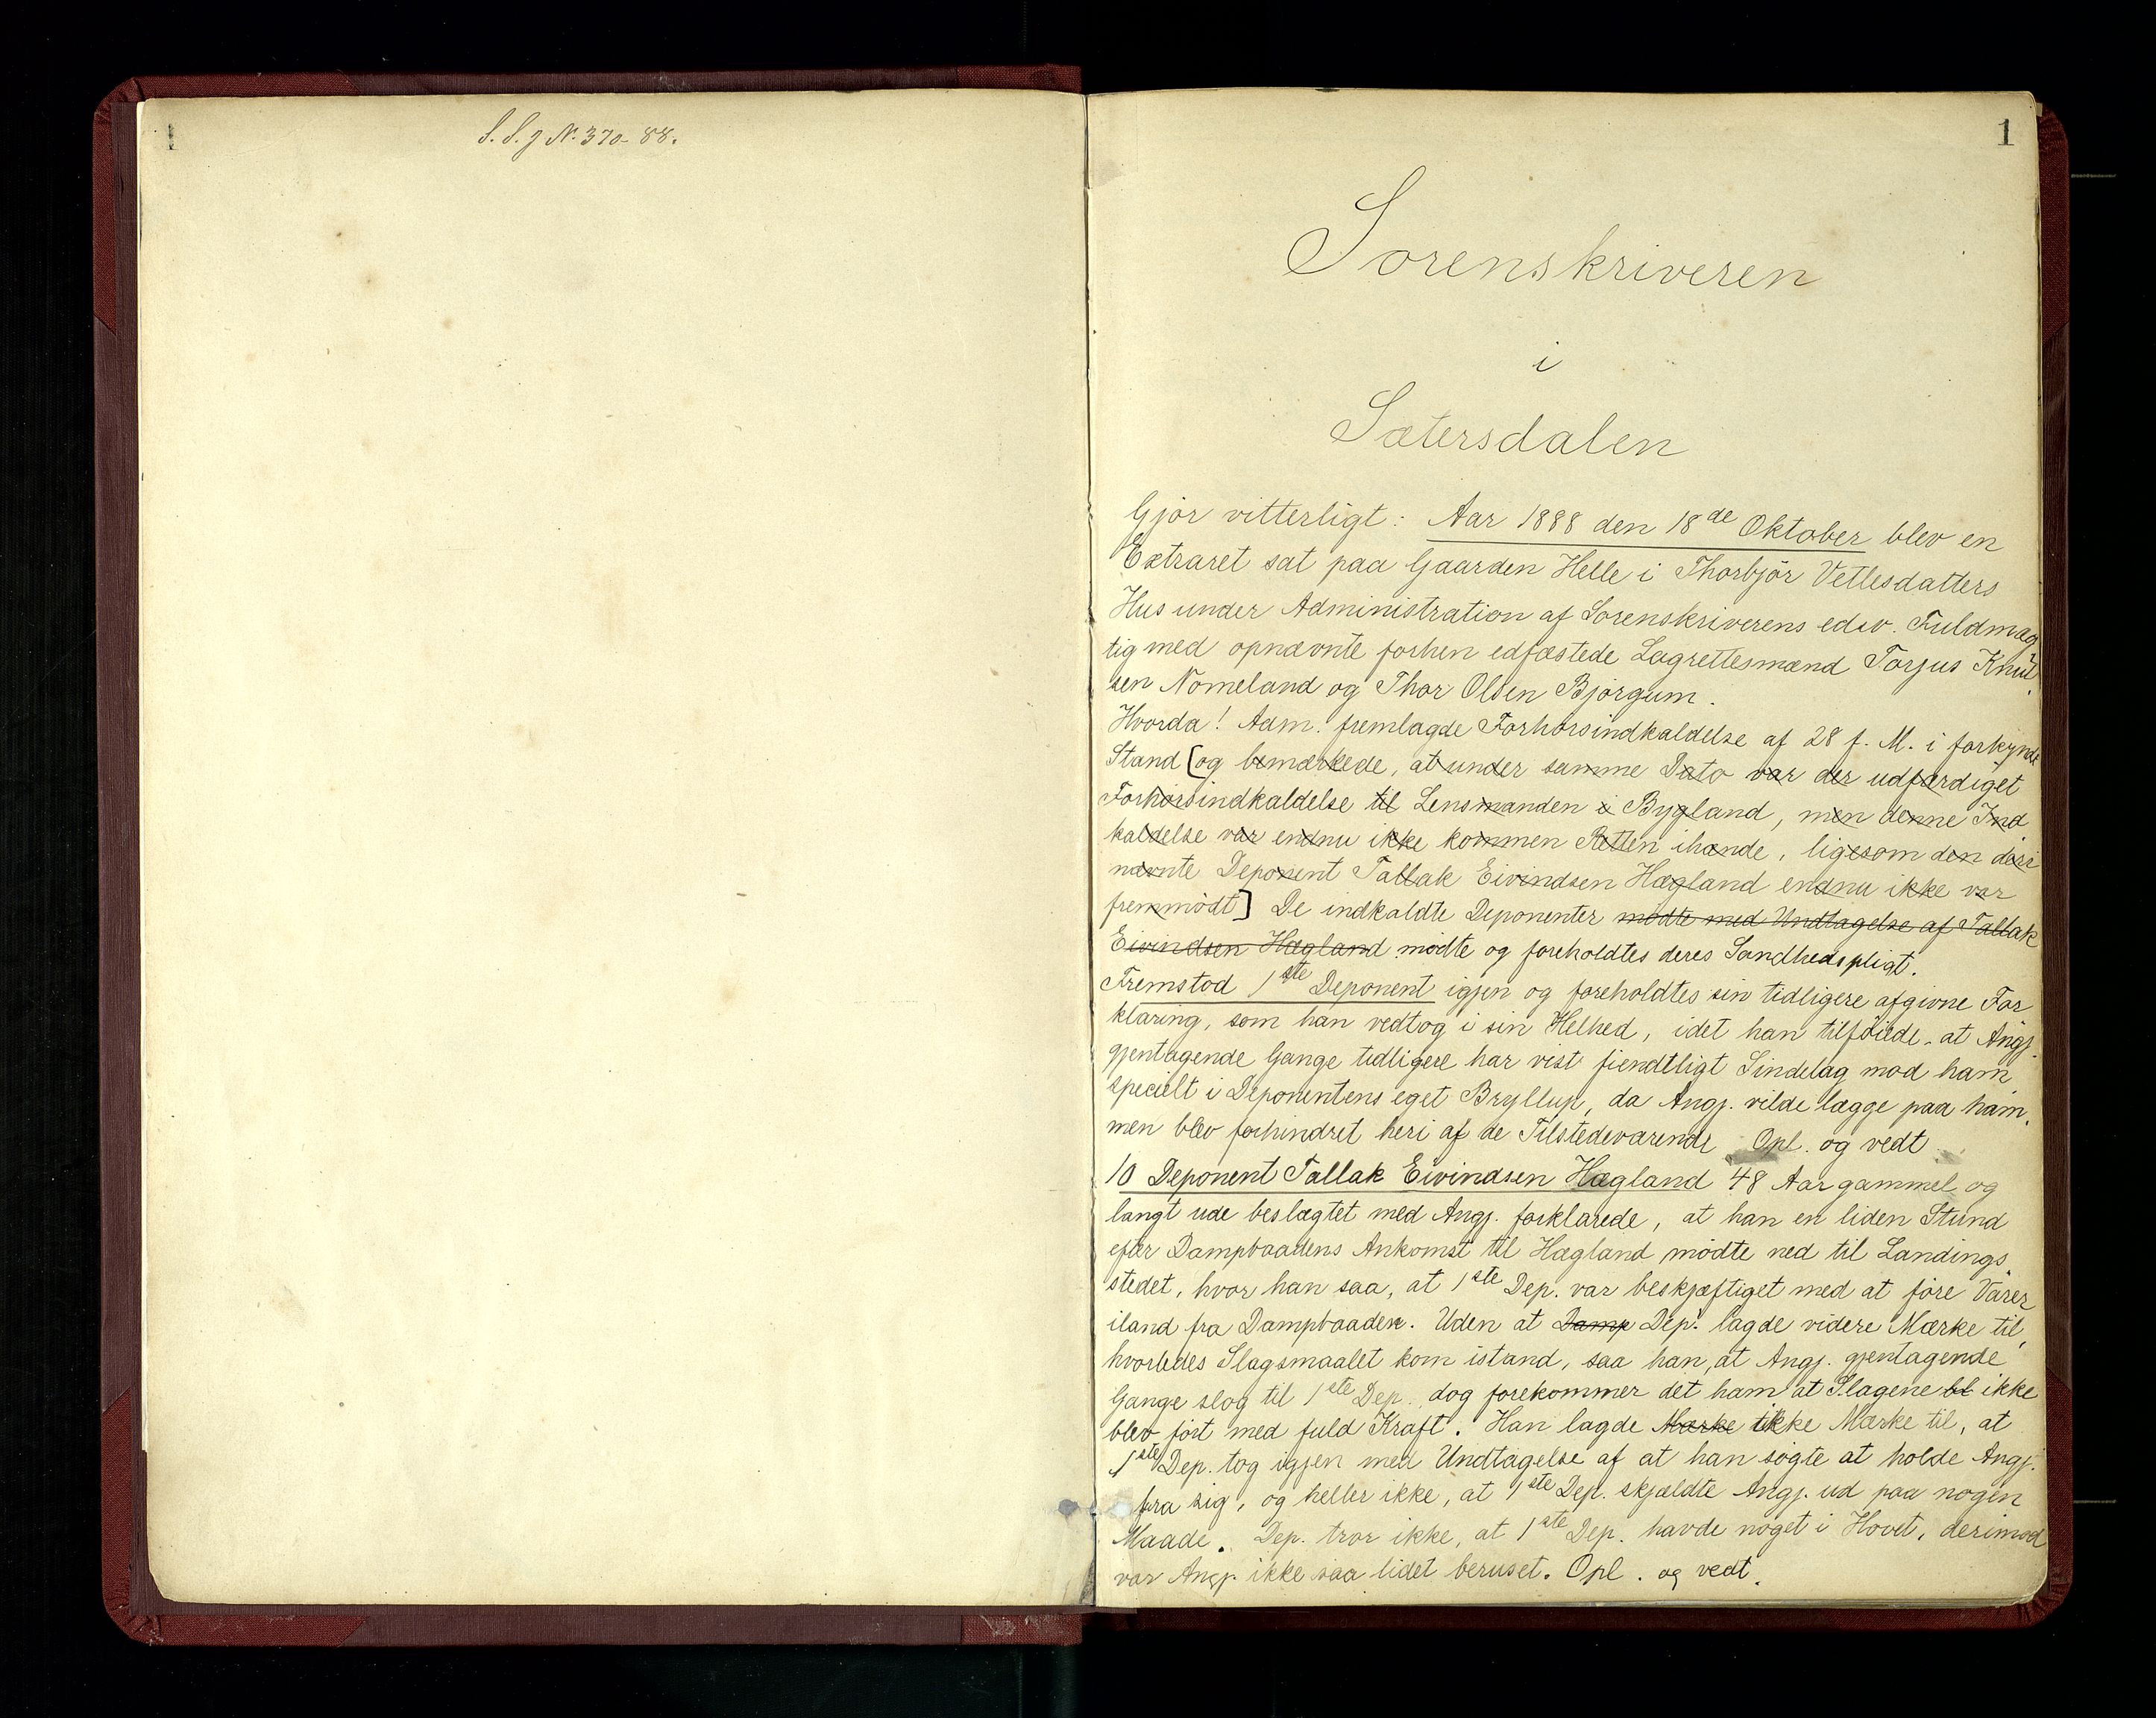 S. S. J N. 370-88.
1
Sorenskriveren
i
Sætersdalen
Gjör vitterligt: Aar 1888 den 18de Oktober blev en
Extraret sat paa Gaarden Helle i Thorbjör Vetlesdatters
Hus under Administration af Sorenskriverens edsv. Fuldmæg
tig med opnævnte forhen edfæstede Lagrettesmænd Torjus Knut
sen Nomeland og Thor Olsen Bjørgum.
Hvorda! Adm. fremlagde Forhörsindkaldelse af 28 f. M. i forkyndt
Stand [og bemærkede, at under samme Dato var der udfærdiget
Forhörsindkaldelse til Lensmanden i Bygland, men denne Ind
kaldelse var endnu ikke kommen Retten ihænde, ligesom den deri
nævnte Deponent Tallak Eivindsen Hægland endnu ikke var
fremmödt] De indkaldte Deponenter mödte med Undtagelse af Tallak
Eivindsen Hægland mödte og foreholdtes deres Sandhedspligt.
Fremstod 1ste Deponent igjen og foreholdtes sin tidligere afgivne For
klaring, som han vedtog i sin Helhed, idet han tilföiede, at Angj.
gjentagende Gange tidligere har vist fiendtligt Sindelag mod ham
specielt i Deponentens eget Bryllup, da Angj. vilde lægge paa ham,
men blev forhindret heri af de Tilstedeværende Opl. og vedt
10 Deponent Tallak Eivindsen Hægland 48 Aar gammel og
langt ude beslægtet med Angj. forklarede, at han en liden Stund
efter Dampbaadens Ankomst til Hægland mödte ned til Landings
stedet, hvor han saa, at 1ste Dep. var beskjæftiget med at före Varer
iland fra Dampbaaden. Uden at Damp Dep. lagde videre Mærke til,
hvorledes Slagsmaalet kom istand, saa han, at Angj. gjentagende
Gange slog til 1ste Dep., dog forekommer det ham at Slagene bl ikke
blev fört med fuld Kraft. Han lagde Mærke ikke Mærke til, at
1ste Dep. tog igjen med Undtagelse af at han sögte at holde Angj.
fra sig, og heller ikke, at 1ste Dep. skjældte Angj. ud paa nogen
Maade. Dep. tror ikke, at 1ste Dep. havde noget i Hovet, derimod
var Angj. ikke saa lidet beruset. Opl. og vedt.